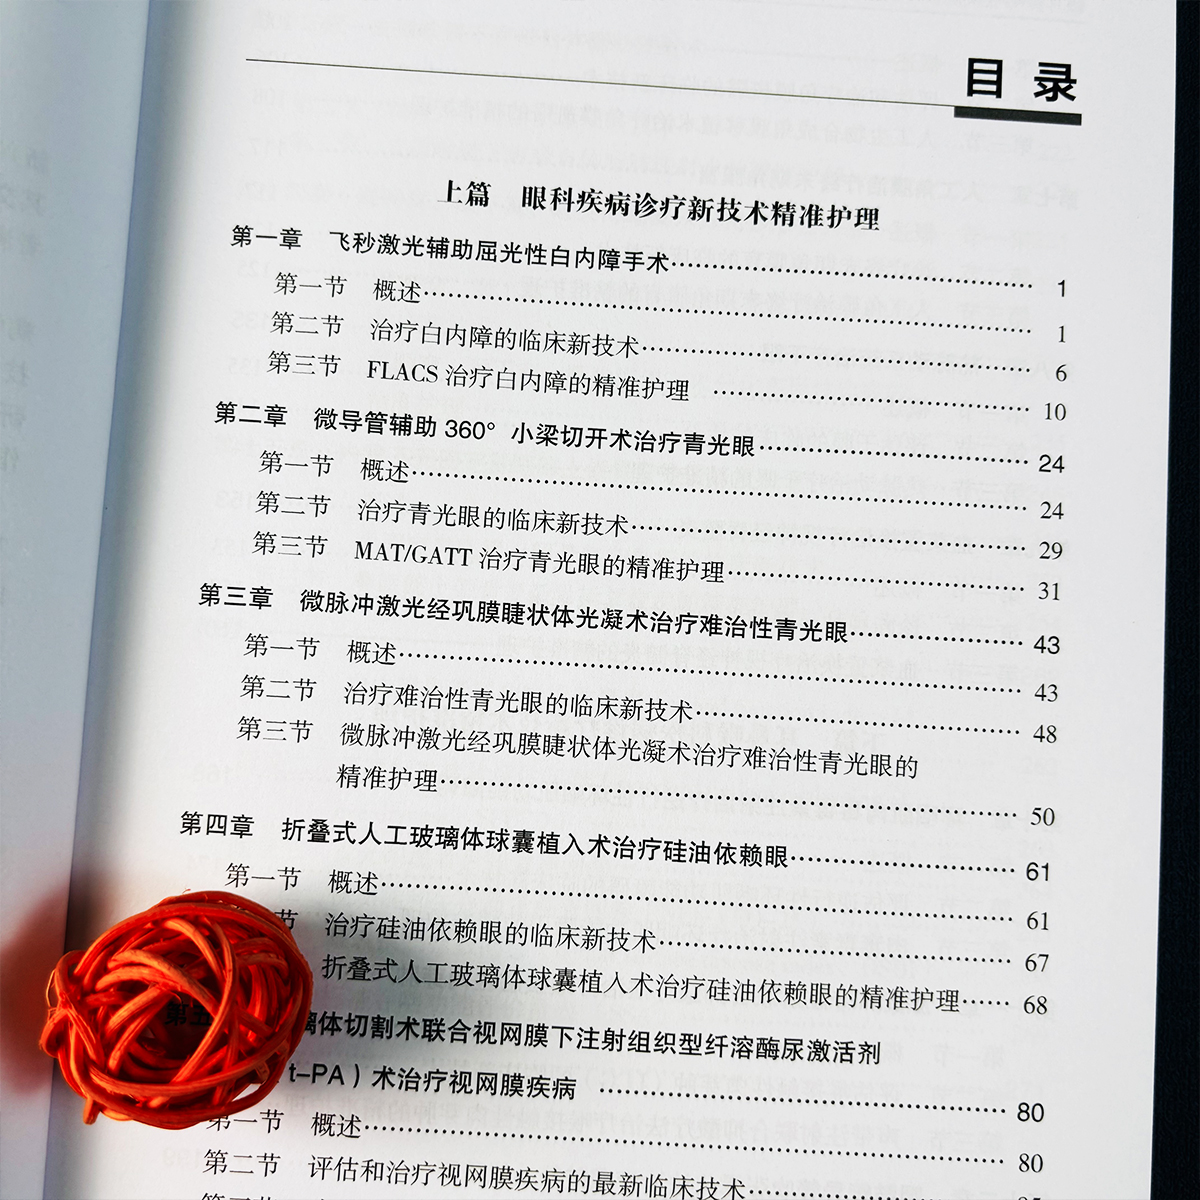 目录
上篇 眼科疾病诊疗新技术精准护理
第一章 飞秒激光辅助屈光性白内障手术 1
第一节 概述 1
第二节 治疗白内障的临床新技术 6
第三节 FLACS 治疗白内障的精准护理 10
第二章 微导管辅助 360° 小梁切开术治疗青光眼 24
第一节 概述 24
第二节 治疗青光眼的临床新技术 29
第三节 MAT/GATT 治疗青光眼的精准护理 31
第三章 微脉冲激光经巩膜睫状体光凝术治疗难治性青光眼 43
第一节 概述 43
第二节 治疗难治性青光眼的临床新技术 48
第三节 微脉冲激光经巩膜睫状体光凝术治疗难治性青光眼的
精准护理 50
第四章 折叠式人工玻璃体球囊植入术治疗硅油依赖眼 61
第一节 概述 61
节 治疗硅油依赖眼的临床新技术 67
折叠式人工玻璃体球囊植入术治疗硅油依赖眼的精准护理 68
第五 璃体切割术联合视网膜下注射组织型纤溶酶尿激活剂
t-PA）术治疗视网膜疾病 80
第一节 概述 80
第二节 评估和治疗视网膜疾病的最新临床技术